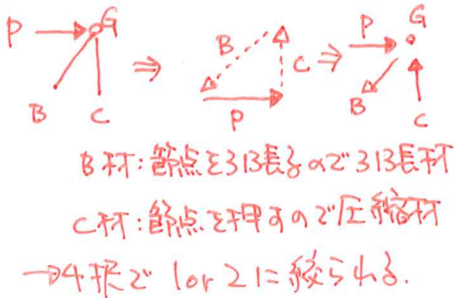 P → G ⇒ B C P ⇒ P G B C
B材:節点を引張るので引張材
C材:節点を押すので圧縮材
→4択で 1or2に絞られる.